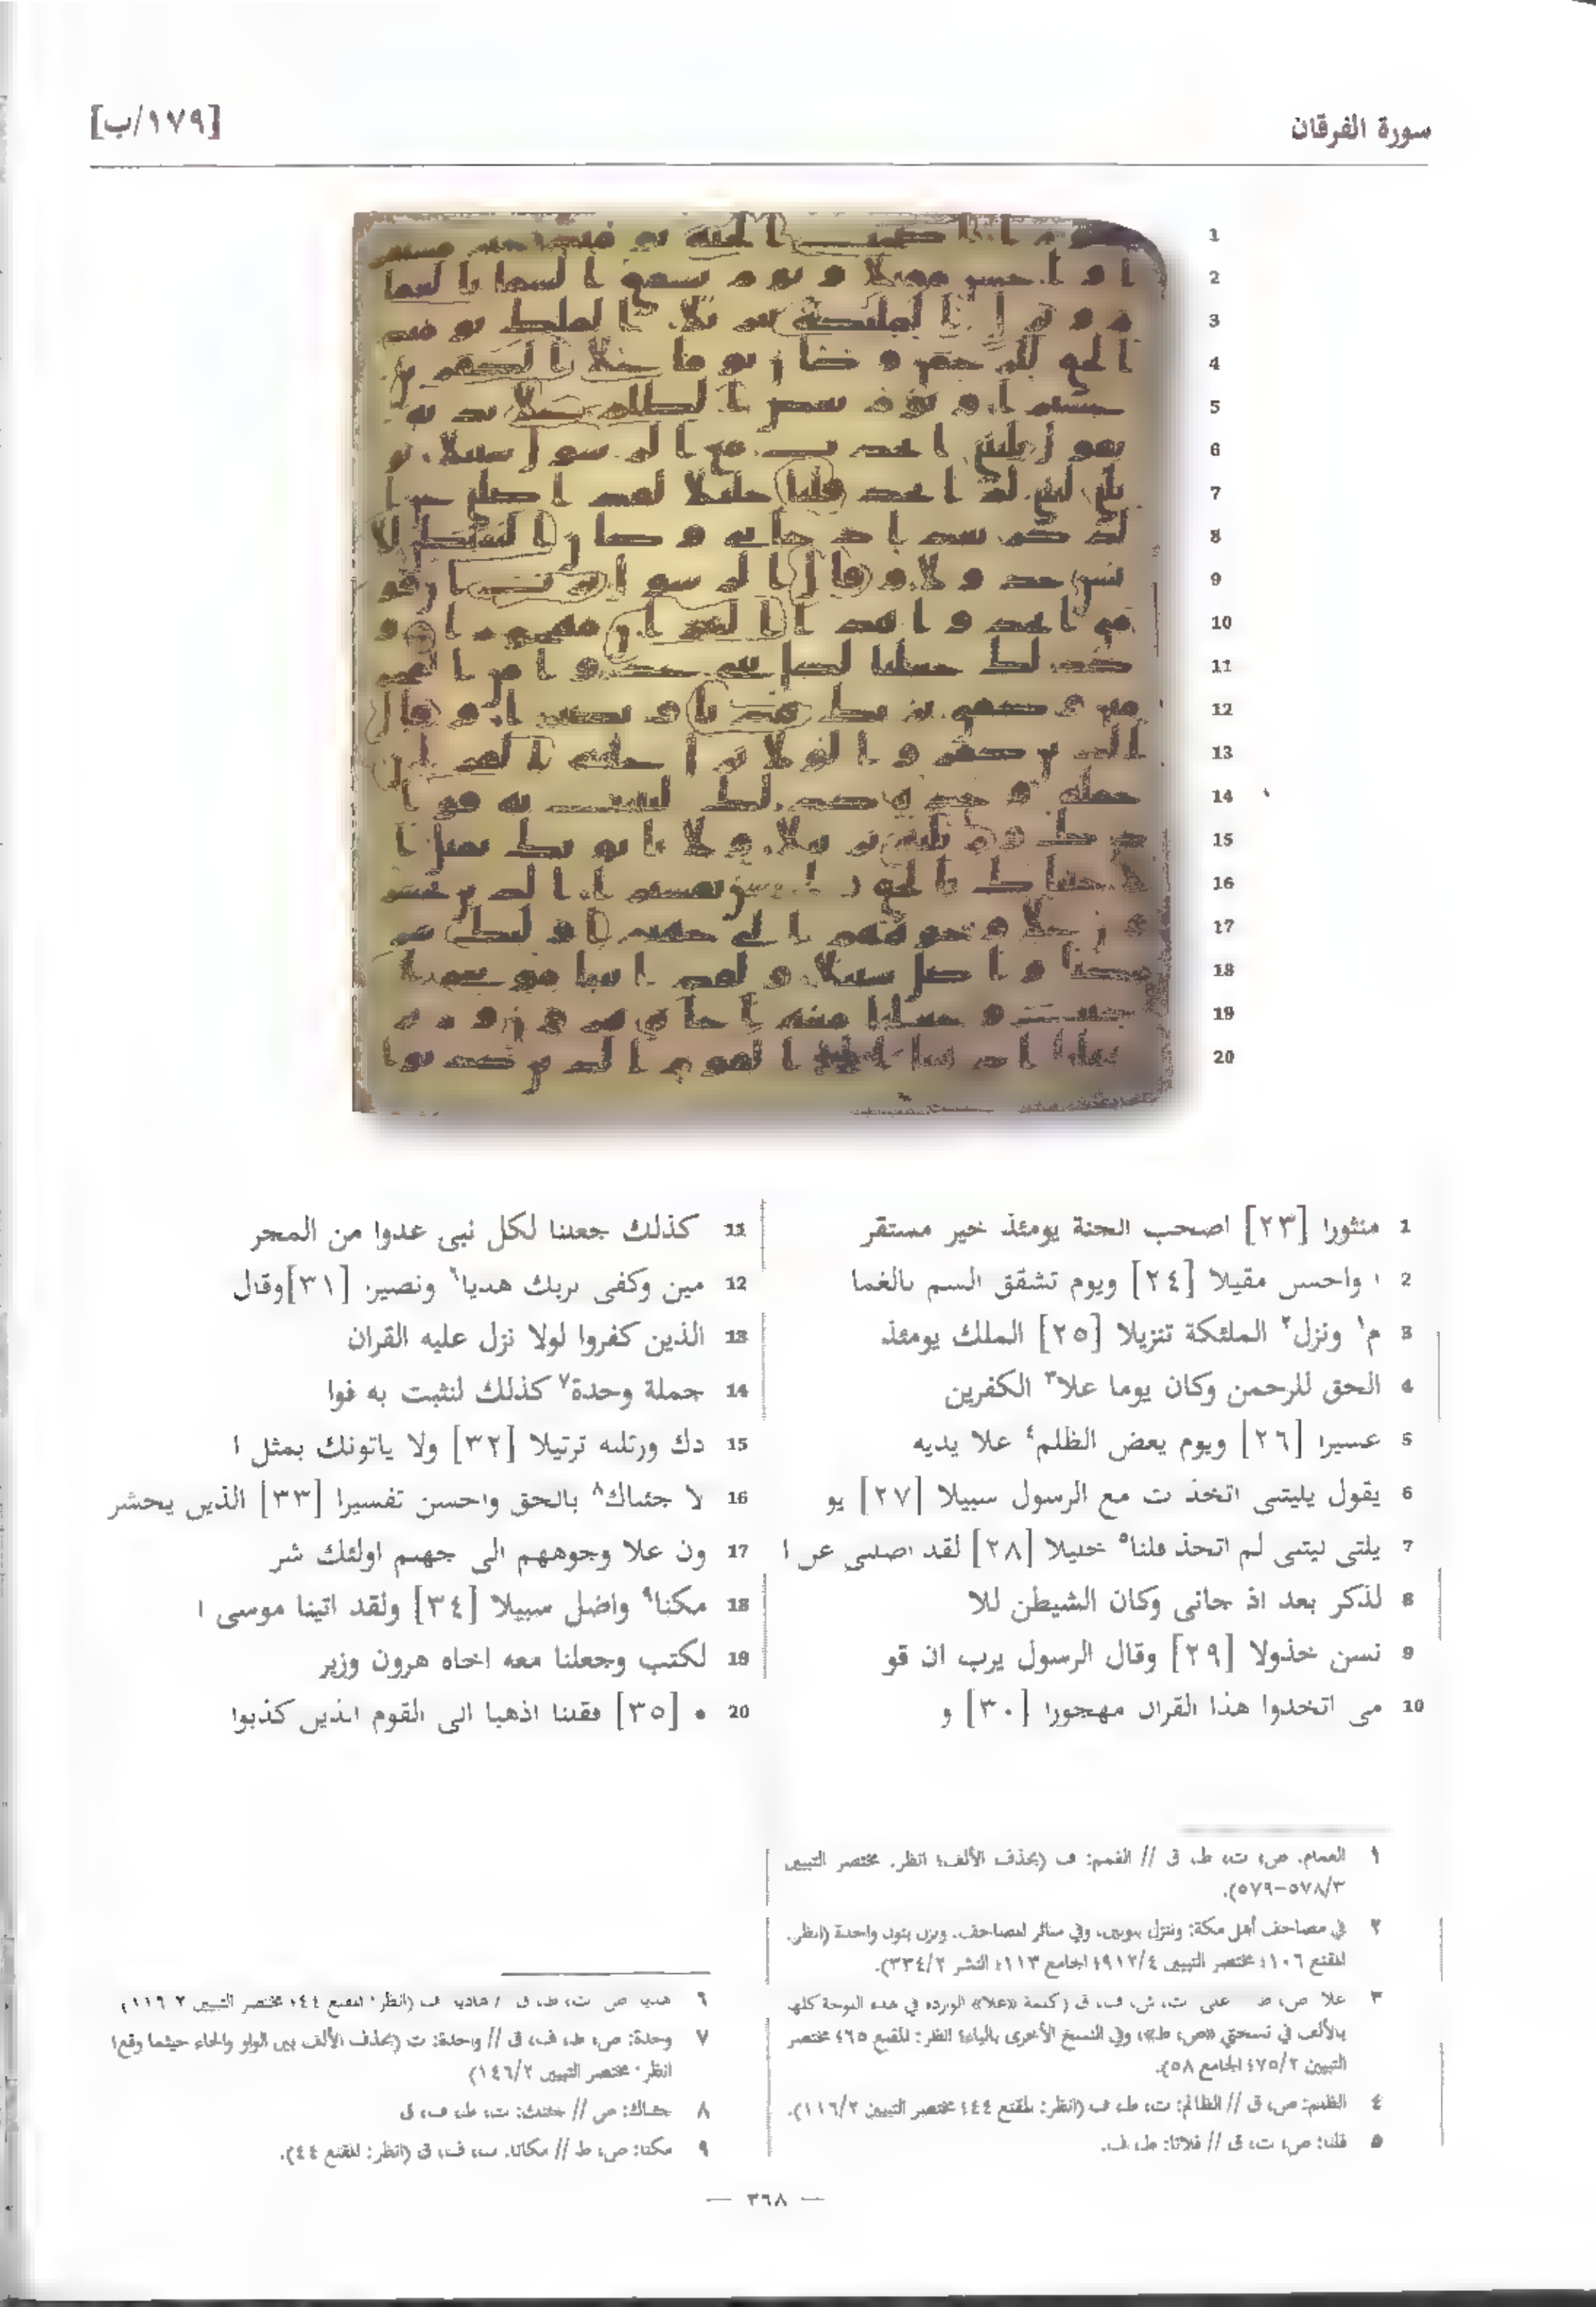 سورة الفرقان
[١٧٩/ب]
1 منثورا [٢٣] اصحب الجنة يومئذ خير مستقر
2 ا واحسن مقيلا [٢٤] ويوم تشقق السما بالغما
3 م١ ونزل٢ الملئكة تنزيلا [٢٥] الملك يومئذ
4 الحق للرحمن وكان يوما علا٣ الكفرين
5 عسيرا [٢٦] ويوم يعض الظلم٤ علا يديه
6 يقول يليتنى اتخذ ت مع الرسول سبيلا [٢٧] يو
7 يلتى ليتنى لم اتخذ فلنا٥ خليلا [٢٨] لقد اضلنى عن ا
8 لذكر بعد اذ جانى وكان الشيطن للا
9 نسن خذولا [٢٩] وقال الرسول يرب ان قو
10 مى اتخذوا هذا القران مهجورا [٣٠] و
11 كذلك جعلنا لكل نبى عدوا من المجر
12 مين وكفى بربك هديا٦ ونصيرا [٣١] وقال
13 الذين كفروا لولا نزل عليه القران
14 جملة وحدة٧ كذلك لنثبت به فوا
15 دك ورتلنه ترتيلا [٣٢] ولا ياتونك بمثل ا
16 لا جئناك٨ بالحق واحسن تفسيرا [٣٣] الذين يحشر
17 ون علا وجوههم الى جهنم اولئك شر
18 مكنا٩ واضل سبيلا [٣٤] ولقد اتينا موسى ا
19 لكتب وجعلنا معه اخاه هرون وزير
20 • [٣٥] فقلنا اذهبا الى القوم الذين كذبوا
١ الغمام: ص، ت، ط، ق // الغمم: ف (بحذف الألف؛ انظر: مختصر التبيين
٥٧٨/٣-٥٧٩).
٢ في مصاحف أهل مكة: وننزل بنونين، وفي سائر المصاحف: ونزل بنون واحدة (انظر:
المقنع ١٠٦؛ مختصر التبيين ٩١٢/٤؛ الجامع ١١٣؛ النشر ٣٣٤/٢).
٣ علا: ص، ط // على: ت، ش، ف، ق (كلمة «علا» الواردة في هذه اللوحة كلها
بالألف في نسختي «ص، ط»، وفي النسخ الأخرى بالياء؛ انظر: المقنع ٦٥؛ مختصر
التبيين ٧٥/٢؛ الجامع ٥٨).
٤ الظلم: ص، ق // الظالم: ت، ط، ف (انظر: المقنع ٤٤؛ مختصر التبيين ١١٦/٢).
٥ فلنا: ص، ت، ق // فلانا: ط، ف.
٦ هديا: ص، ت، ط، ق // هاديا: ف (انظر: المقنع ٤٤؛ مختصر التبيين ١١٦/٢)
٧ وحدة: ص، ط، ف، ق // واحدة: ت (بحذف الألف بين الواو والحاء حيثما وقع؛
انظر: مختصر التبيين ١٤٦/٢)
٨ جئناك: ص // جئنك: ت، ط، ف، ق
٩ مكنا: ص، ط // مكانا: ت، ف، ق (انظر: المقنع ٤٤).
— ٣٦٨ —